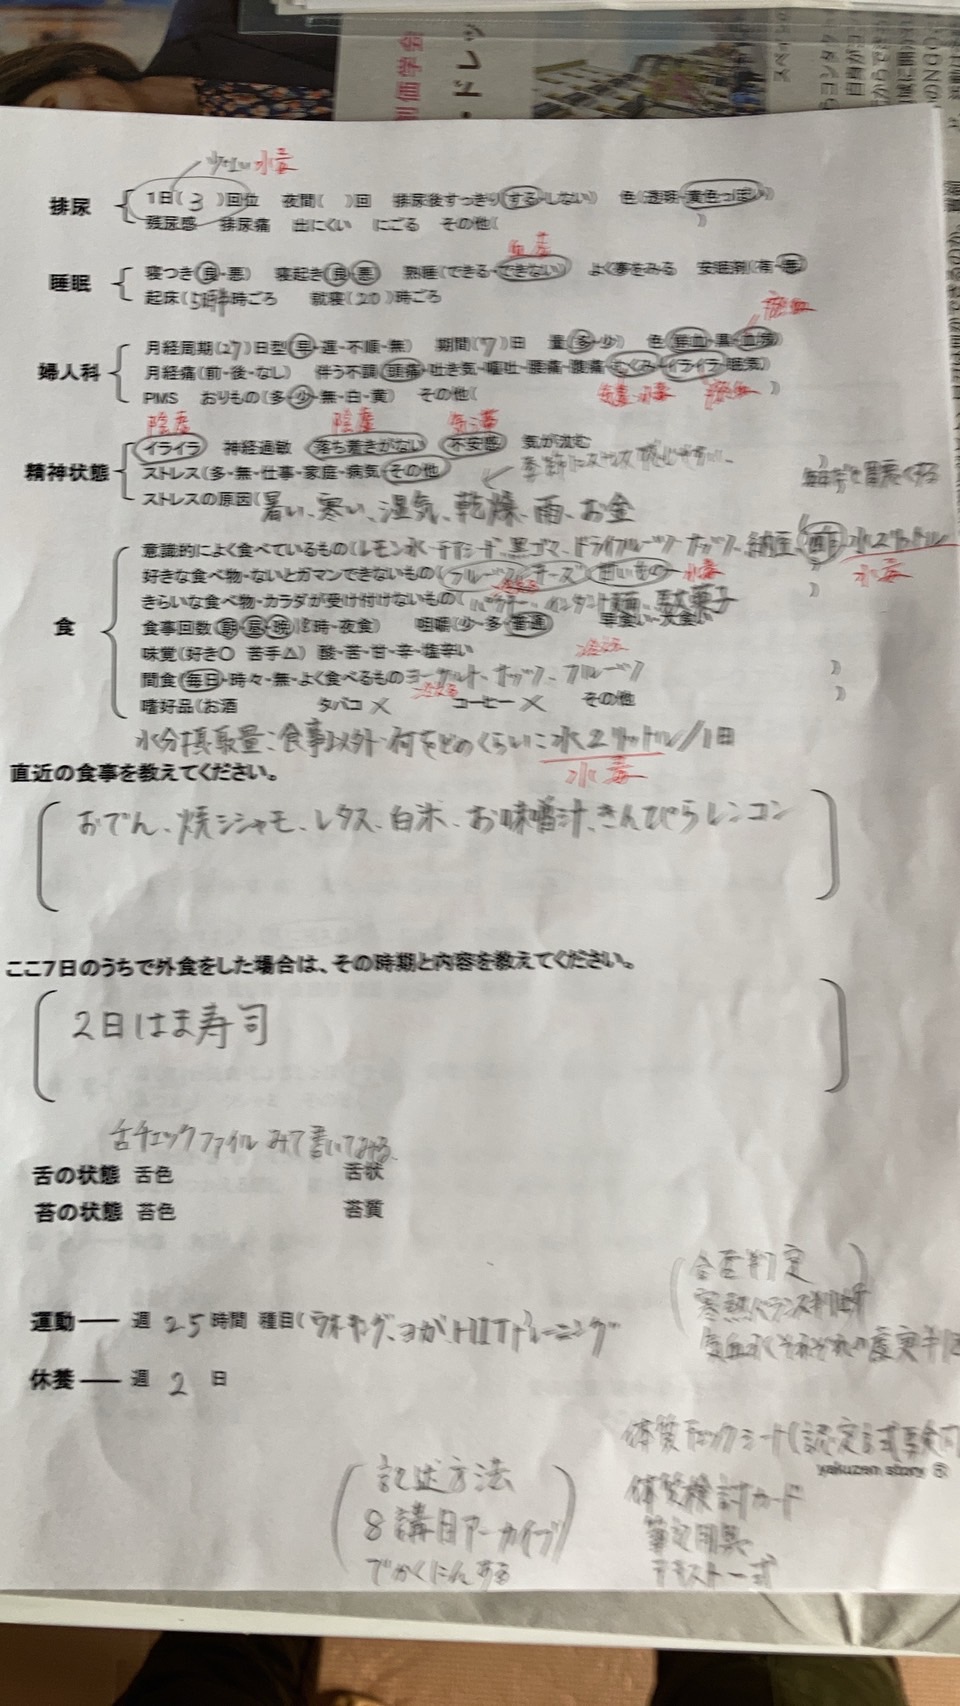 少ない 水毒
排尿 1日(3)回位 夜間( )回 排尿後すっきり(する・しない) 色(透明・黄色っぽい)
残尿感 排尿痛 出にくい にごる その他( )
血虚
睡眠 寝つき(良・悪) 寝起き(良・悪) 熟睡(できる・できない) よく夢をみる 安眠剤(有・無)
起床(5時半時ごろ 就寝(20)時ごろ
瘀血
婦人科 月経周期(27)日型(早・遅・不順・無) 期間(7)日 量(多・少) 色(鮮血・黒・血塊)
月経痛(前・後・なし) 伴う不調(頭痛・吐き気・嘔吐・腰痛・腹痛・むくみ・イライラ・眠気)
PMS おりもの(多・少・無・白・黄) その他( )
水毒 瘀血
陰虚 陰虚 気滞
精神状態 イライラ 神経過敏 落ち着きがない 不安感 気が沈む
ストレス(多・無・仕事・家庭・病気・その他
季節にストレス感じやすい、
ストレスの原因(暑い、寒い、湿気、乾燥、雨、お金
食 意識的によく食べているもの(レモン水、チアシード、黒ゴマ、ドライフルーツ、ナッツ、納豆、酢、水2リットル
水毒
好きな食べ物・ないとガマンできないもの(フルーツ、チーズ、甘いもの 水毒
きらいな食べ物・カラダが受け付けないもの(パクチー、インスタント麺、駄菓子
食事回数(朝・昼・晩)18時・夜食) 咀嚼(少・多・普通) 早食い・大食い
味覚(好き○ 苦手△) 酸・苦・甘・辛・塩辛い
間食(毎日・時々・無・よく食べるものヨーグルト、ナッツ、フルーツ )
嗜好品(お酒 タバコ× コーヒー× その他 )
水分摂取量:食事以外 何をどのくらい:水2リットル/1日
水毒
直近の食事を教えてください。
おでん、焼シシャモ、レタス、白米、お味噌汁、きんぴらレンコン
ここ7日のうちで外食をした場合は、その時期と内容を教えてください。
2日はま寿司
舌チェックファイルみて書いてみる
舌の状態 舌色 舌状
苔の状態 苔色 苔質
寒熱バランス
運動── 週 25時間 種目(ウォーキング、ヨガ、HIITトレーニング
休養── 週 2 日
体質チェックシート(認定試験
yakuzen story ⑤
記述方法
8講目アーカイブ
でかくにんする
体質検討カード
筆記用具
テキスト一式